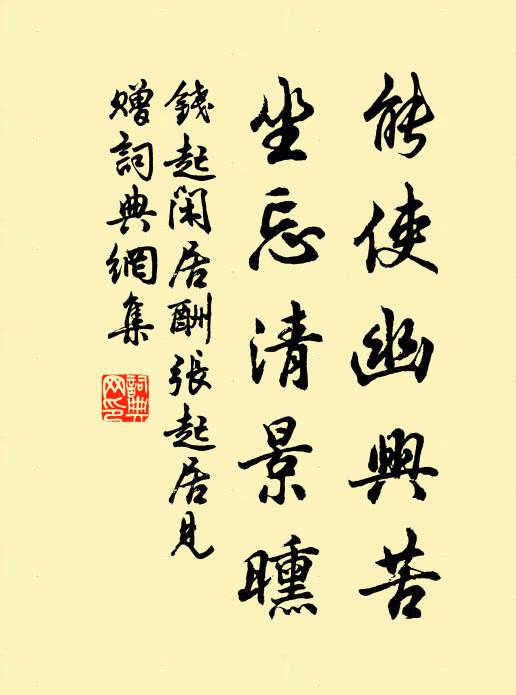 能使幽興苦
坐忘清景曛
錢起閑居酬張起居見
贈詞典網集
詞典
网